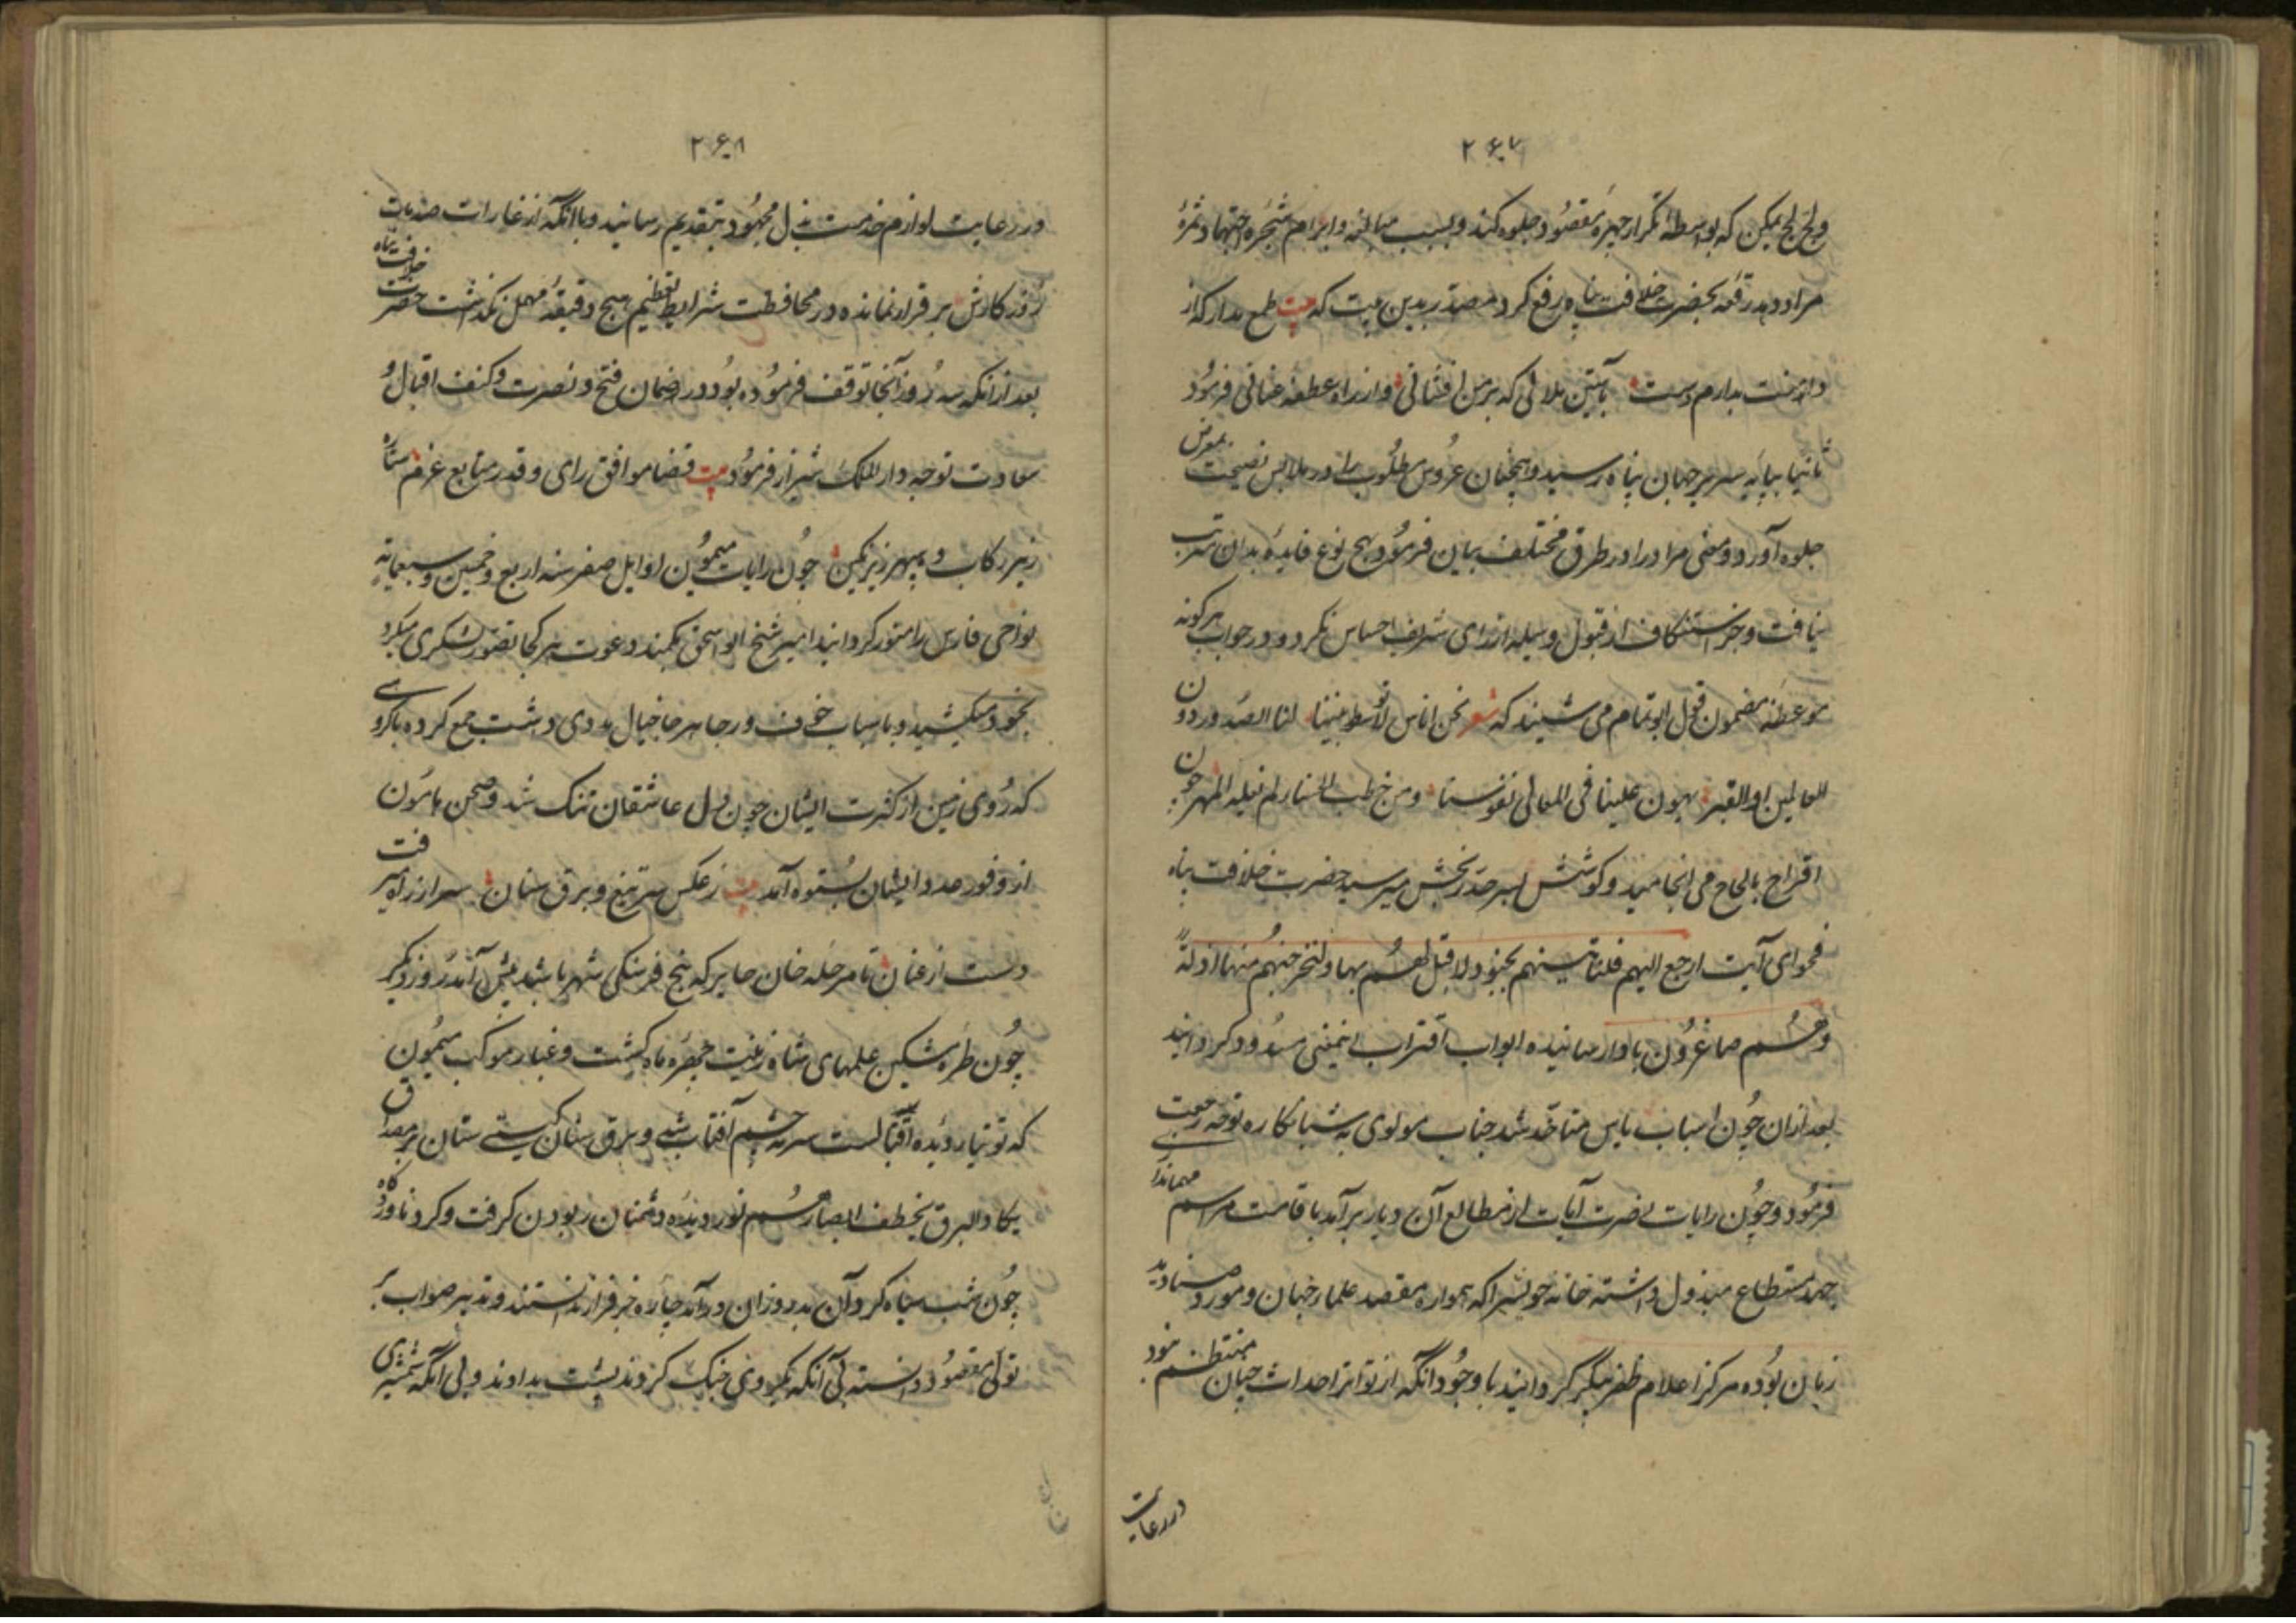 ۲۶۷
ولج لج یمکن که بواسطهٔ تکرار چهرهٔ مقصود جلوه کند و بسبب مبالغه و ابرام شجره اجتهاد ثمرهٔ
مراد دهد رقعه بحضرت خلافت پناه رفع کرد مصدر بدین بیت که بیت طمع مدار که از
دامنت بدارم دست بآستین ملالی که بر من افشانی و از راه عطفه عنانی فرمود
ثانیا بپایه سریر جهان پناه رسید و همچنان عروس مطلوب را در ملابس نصیحت بمعرض
جلوه آورد و معنی مراد را در طرق مختلف بیان فرمود هیچ نوع فایده بدان مترتب
نیافت و جز استنکاف از قبول وسیله از رای شریف احساس نکرد و در جواب هرگونه
موعظه مضمون قول ابو تمام می شنید که شعر نحن اناس لا توسط بیننا لنا الصدر دون
العالمین او القبر یهون علینا فی المعالی نفوسنا و من خطب الحسناء لم یغله المهر چون
اقتراح بالحاح می انجامید و کوشش بسرحد رنجش میرسید حضرت خلافت پناه
فحوای آیت ارجع الیهم فلناتینهم بجنود لا قبل لهم بها و لنخرجنهم منها اذلة
و هم صاغرون باو رسانیده ابواب اقتراب این معنی مسدود گردانید
بعد ازان چون اسباب یاس متاکد شد جناب مولوی به شبانکاره توجه و رجعت
فرمود و چون رایات نصرت آیات از مطالع آن دیار برآمد باقامت مراسم مهمانداری
جهد مستطاع مبذول داشته خانه خویش را که همواره مقصد علماء جهان و مورد صنادید
زمان بوده مرکز اعلام ظفر پیکر گردانید با وجود آنکه از تواتر احداث جهان منتظم نبود
در رعایت
۲۶۸
و در رعایت لوازم خدمت بذل مجهود بتقدیم رسانید و با آنکه از غارات صدمات
روزکارش بر قرار نمانده در محافظت شرایط تعظیم هیچ دقیقهٔ مهمل نکذاشت حضرت خلافت پناه
بعد ازانکه سه روز آنجا توقف فرموده بود در ضمان فتح و نصرت و کنف اقبال و
سعادت توجه دار الملک شیراز فرمود بیت قضا موافق رای و قدر متابع عزم ستاره
زیر رکاب و سپهر زیر نکین چون رایات میمون اوایل صفر سنه اربع و خمسین و سبعمایه
نواحی فارس را منور کردانید امیر شیخ ابو اسحق بکمند دعوت هر کجا تصور لشکری میکرد
بخود میکشید و باسباب خوف و رجا هر جا خیال مددی داشت جمع کرده با گروهی
که روی زمین از کثرت ایشان چون دل عاشقان تنک شد و صحن هامون
از وفور عدد ایشان بستوه آمد بیت ز عکس تیغ و برق سنان سر از راه میرفت
دست از عنان تا مرحله خان حابر که پنج فرسنکی شهر باشد پیش آمد روز دیکر
چون طره مشکین علمهای شاه زینت چهره ماه کشت و غبار موکب میمون
که توتیاء دیده اقبالست سرمه چشم آفتاب شد و برق سنان کیتی ستان بر مصداق
یکاد البرق یخطف ابصارهم نور دیده دشمنان ربودن کرفت و کرد ناوردگاه
چون شب سیاه کرد آن بد روزان درآمد چاره جز فرار ندانستند و تدبیر صواب بر
تولی مقصود دانسته بی آنکه بکر و روی جنک کردند پشت بدادند و بی آنکه شمشیری